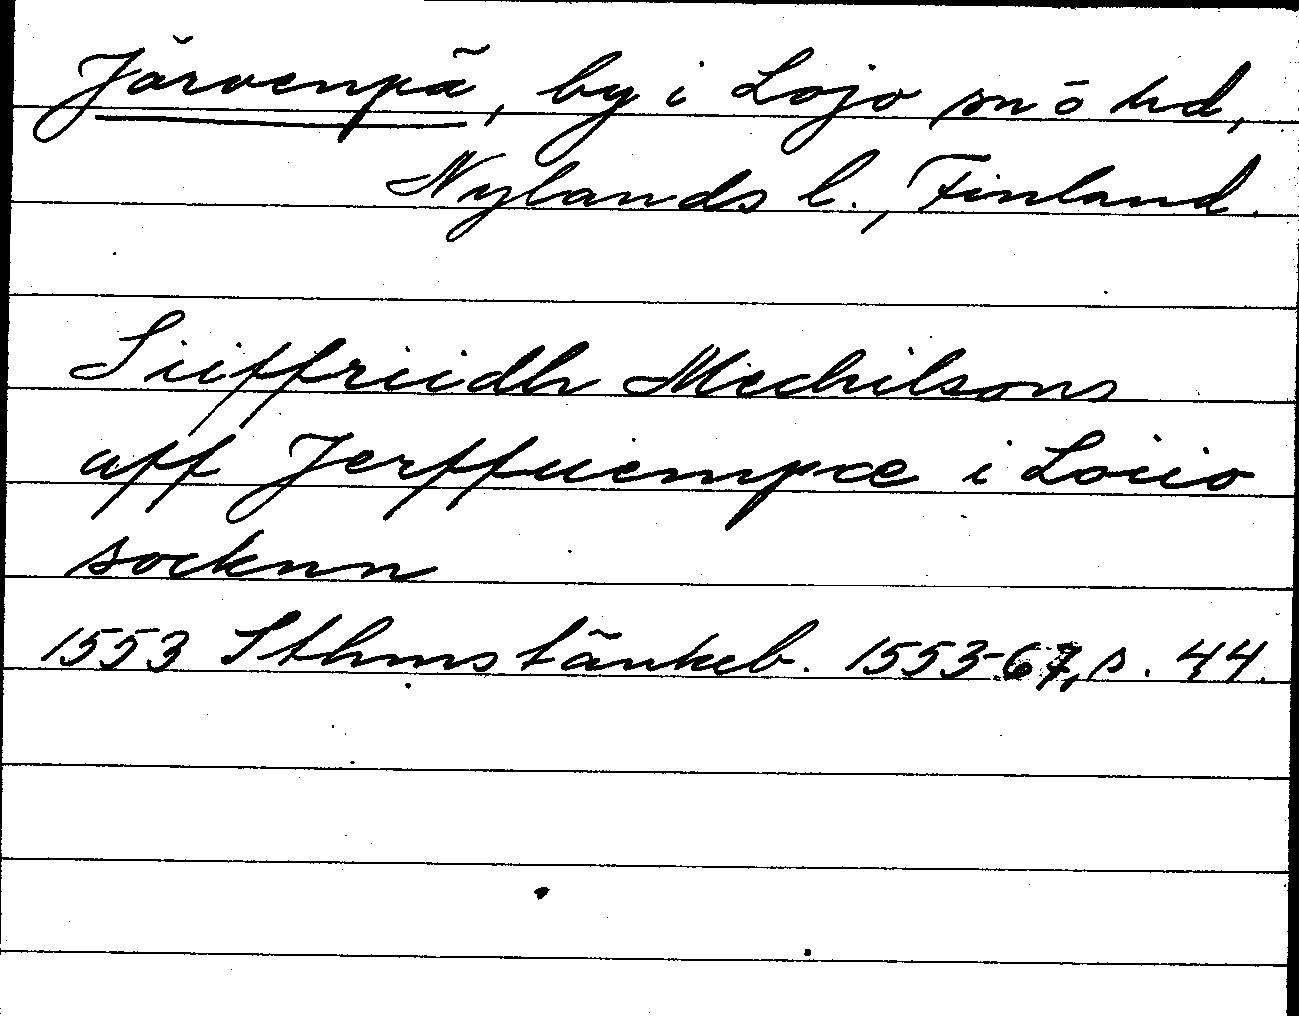 Järvenpä, by i Lojo sn ō hd,
Nylands l., Finland.
Siiffriidh Mechilsons
aff Jerffuempæ i Loiio
socknn
1553 Sthms tänkeb. 1553-67, s. 44.